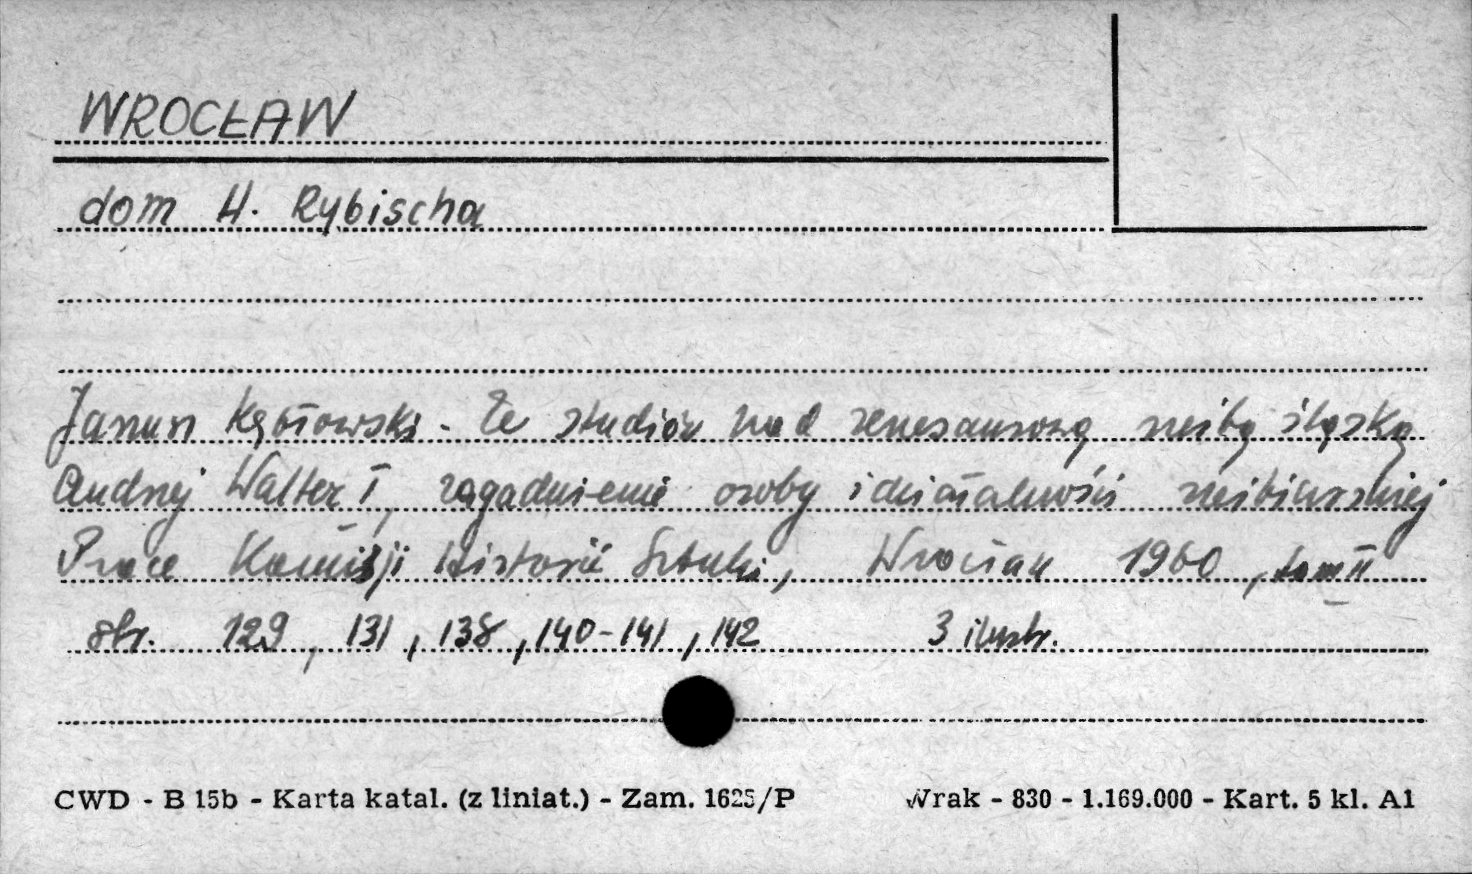 WROCŁAW
dom H. Rybischa
Janusz Kębłowski - Ze studiów nad renesansową rzeźbą śląską
Andrzej Walter I, zagadnienie osoby i działalności rzeźbiarskiej
Prace Komisji Historii Sztuki, Wrocław 1960, tom II
str. 129, 131, 138, 140-141, 142 3 ilustr.
CWD - B 15b - Karta katal. (z liniat.) - Zam. 1625/P Wrak - 830 - 1.169.000 - Kart. 5 kl. A1